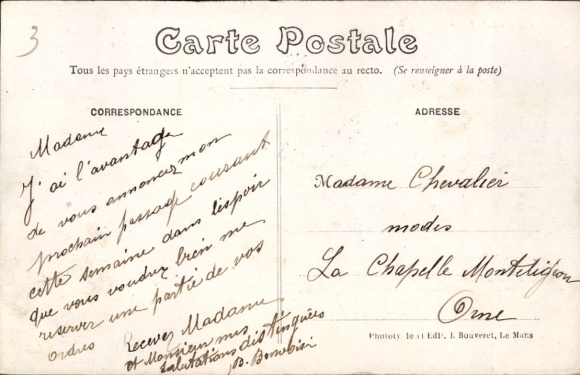 3
Carte Postale
Tous les pays étrangers n'acceptent pas la correspondance au recto. (Se renseigner à la poste)
CORRESPONDANCE
Madame
J'ai l'avantage
de vous annoncer mon
prochain passage courant
cette semaine dans l'espoir
que vous voudrez bien me
reserver une partie de vos
ordres
Recevez Madame
et Monsieur mes
salutations distinguées
B.
ADRESSE
Madame Chevalier
modes
La Chapelle Monteligeon
Orne
Phototy le et Edit. J. Bouveret, Le Mans